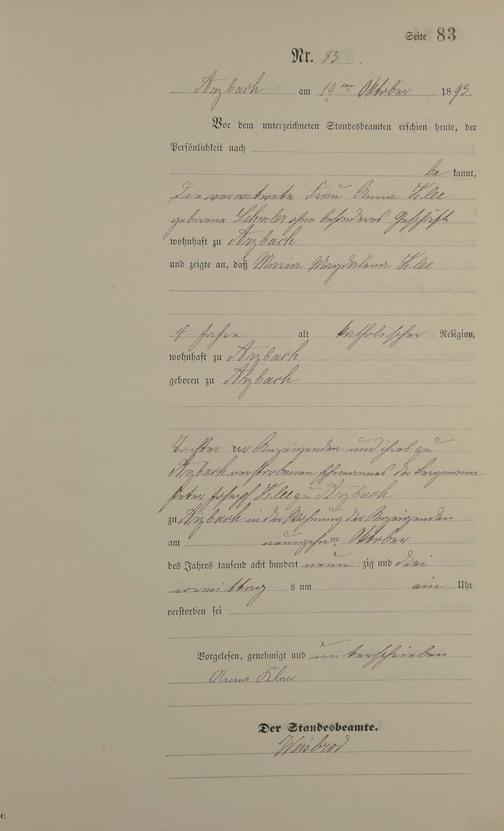 Seite 83
Nr. 83.
Arzbach am 19ten Oktober 1893.
Vor dem unterzeichneten Standesbeamten erschien heute, der
Persönlichkeit nach
be kannt,
die verwitwete Frau Anna Klee
geborene ohne besonderes Geschäft
wohnhaft zu Arzbach
und zeigte an, daß Maria Magdalena Klee
Jahre alt katholischer Religion,
wohnhaft zu Arzbach
geboren zu Arzbach
Tochter der Anzeigenden und ihres zu
Arzbach verstorbenen Ehemannes des Bergmann
Peter Joseph Klee zu Arzbach
zu Arzbach in der Wohnung der Anzeigenden
am neunzehnten Oktober
des Jahres tausend acht hundert neun zig und drei
vormittag s um ein Uhr
verstorben sei
Vorgelesen, genehmigt und unterschrieben
Anna Klee
Der Standesbeamte.
Weisbrod
C.